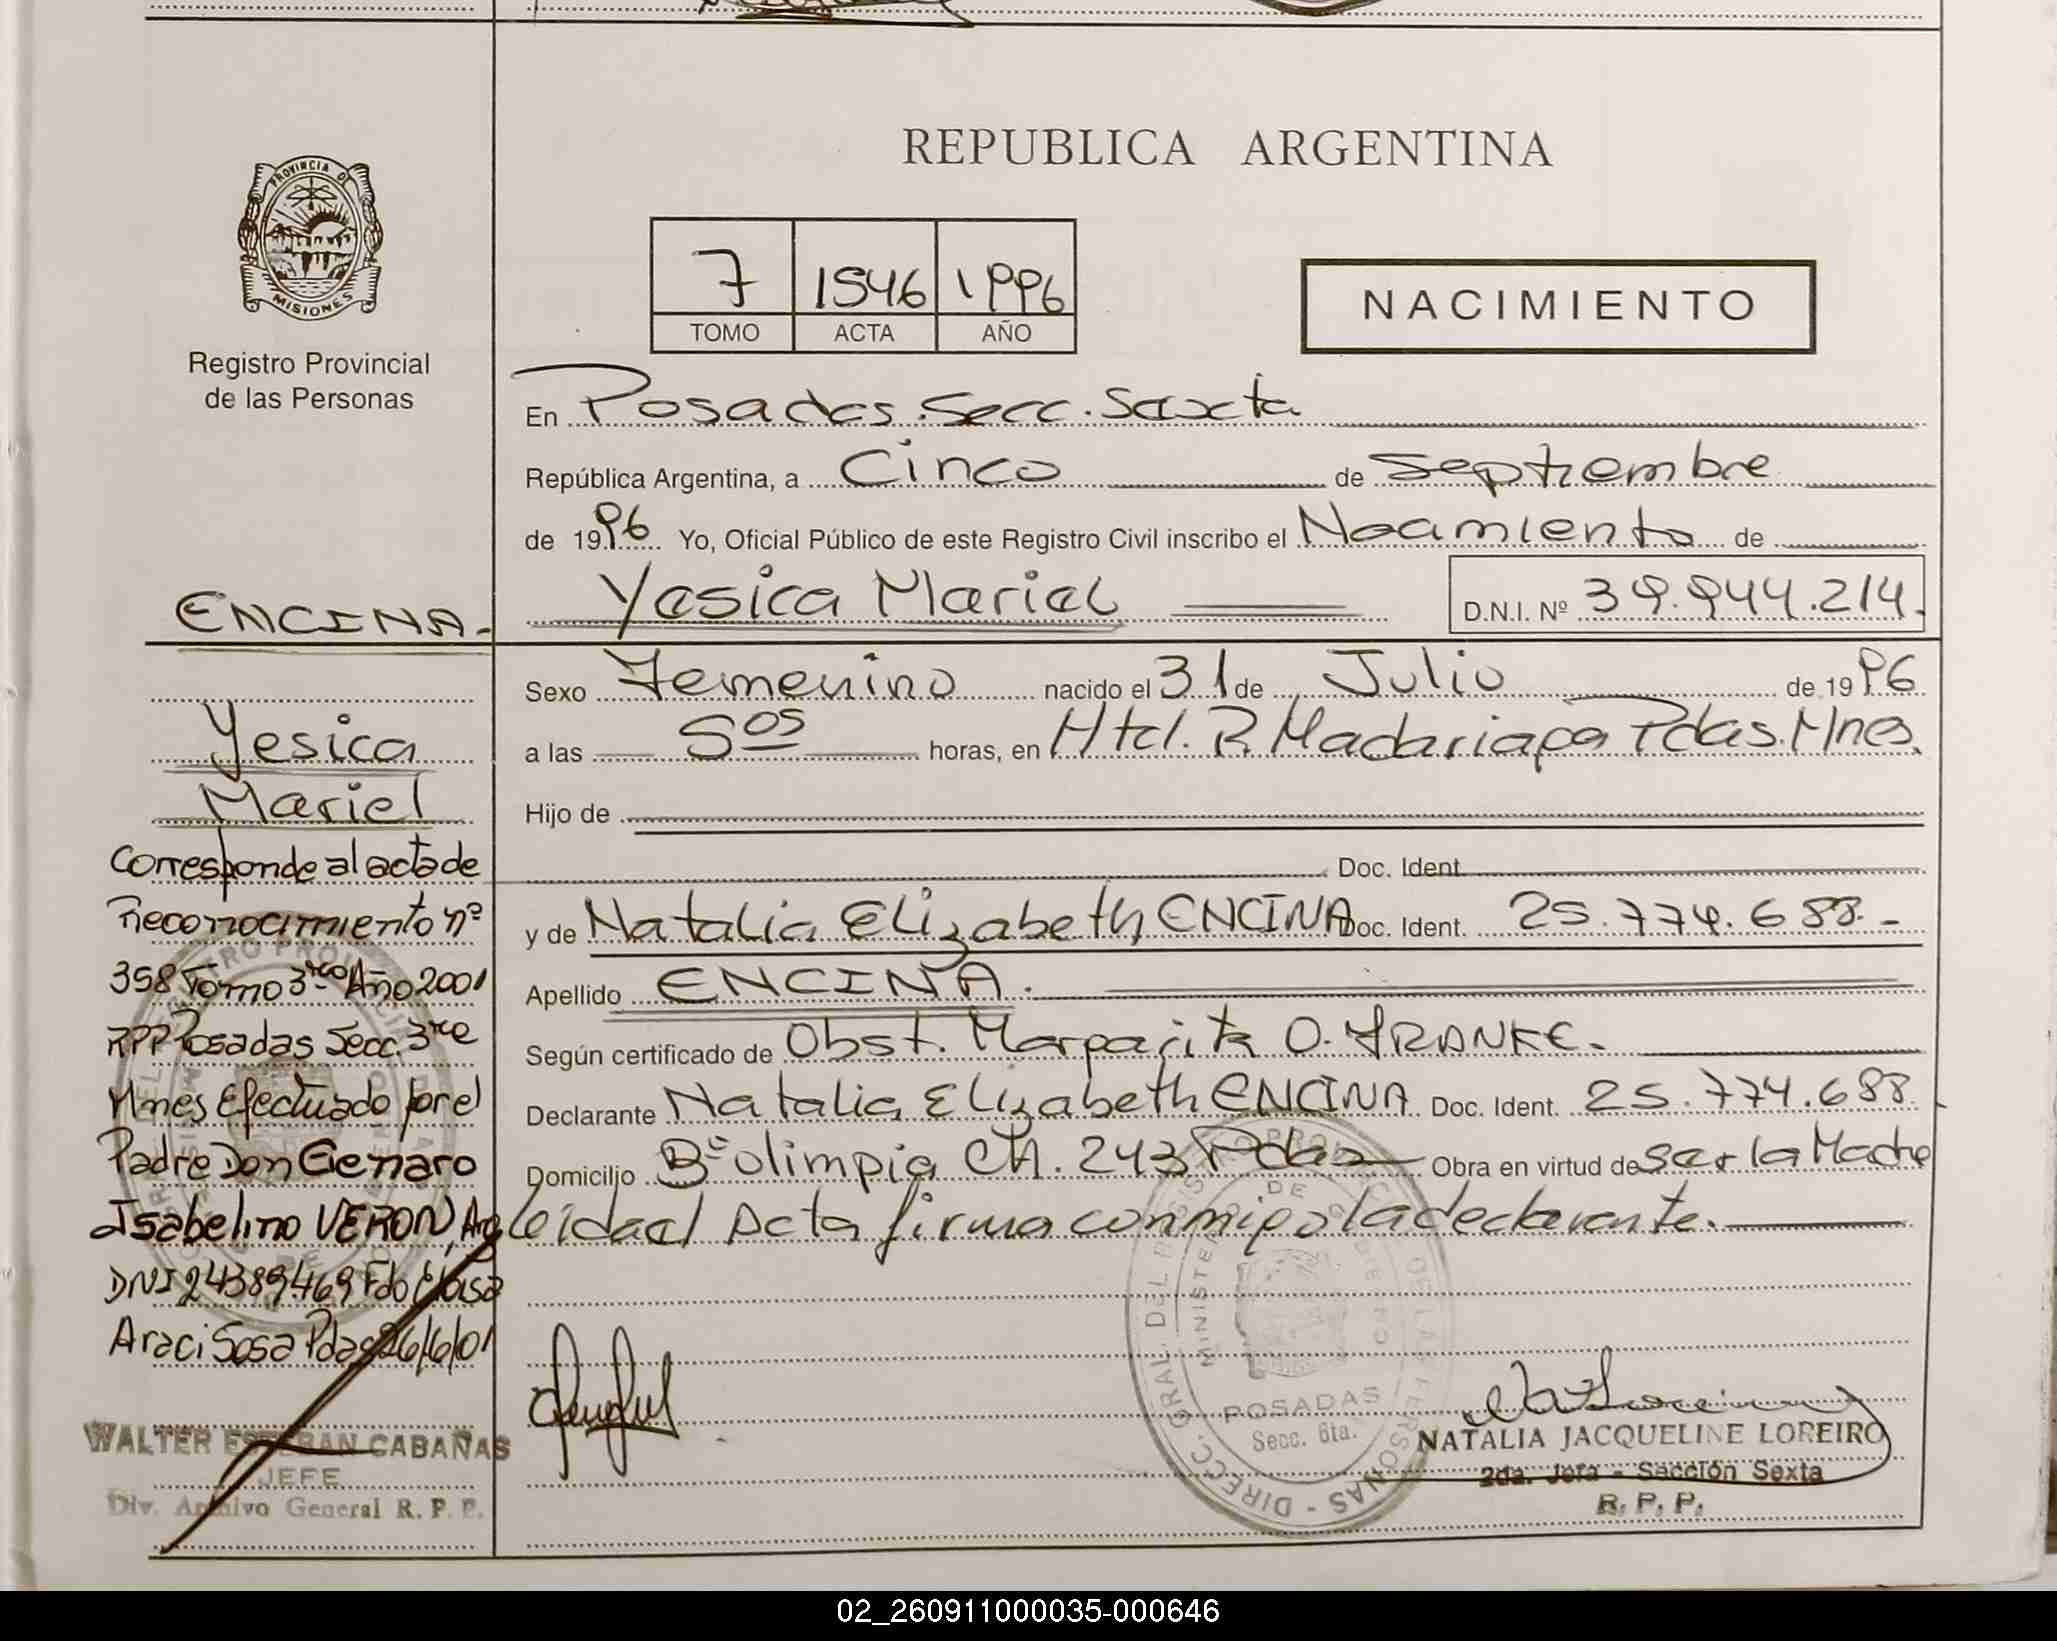 REPUBLICA ARGENTINA
PROVINCIA DE
MISIONES
Registro Provincial
de las Personas
7 1546 1996
TOMO ACTA AÑO
NACIMIENTO
En Posadas. Secc. Sexta
República Argentina, a Cinco de Septiembre
de 1996 Yo, Oficial Público de este Registro Civil inscribo el Nacimiento de
Yesica Mariel D.N.I. Nº 39.944.214.
Sexo Femenino nacido el 31 de Julio de 1996
a las 5os horas, en Htal. R. Madariaga Pdas. Mnes.
Hijo de
Doc. Ident.
y de Natalia Elizabeth ENCINA Doc. Ident. 25.774.688.-
Apellido ENCINA.
Según certificado de Obst. Margarita O. FRANKE.
Declarante Natalia Elizabeth ENCINA Doc. Ident. 25.774.688
Domicilio Bº Olimpia CH. 243 Pdas Obra en virtud de ser la Madre
leida el Acta firma conmigo la declarante.
ENCINA.-
Yesica
Mariel
Corresponde al acta de
Reconocimiento nº
358 Tomo 3ro Año 2001
RPP Posadas Secc. 3ra
Mnes Efectuado por el
Padre Don Genaro
Isabelino VERON, Arg
DNI 24389469 Fdo
Araci Sosa Pdas 26/6/01
WALTER ESTEBAN CABAÑAS
JEFE
Div. Archivo General R. P. P.
POSADAS
Secc. 6ta.
NATALIA JACQUELINE LOREIRO
2da. Jefa - Sección Sexta
R. P. P.
02_260911000035-000646